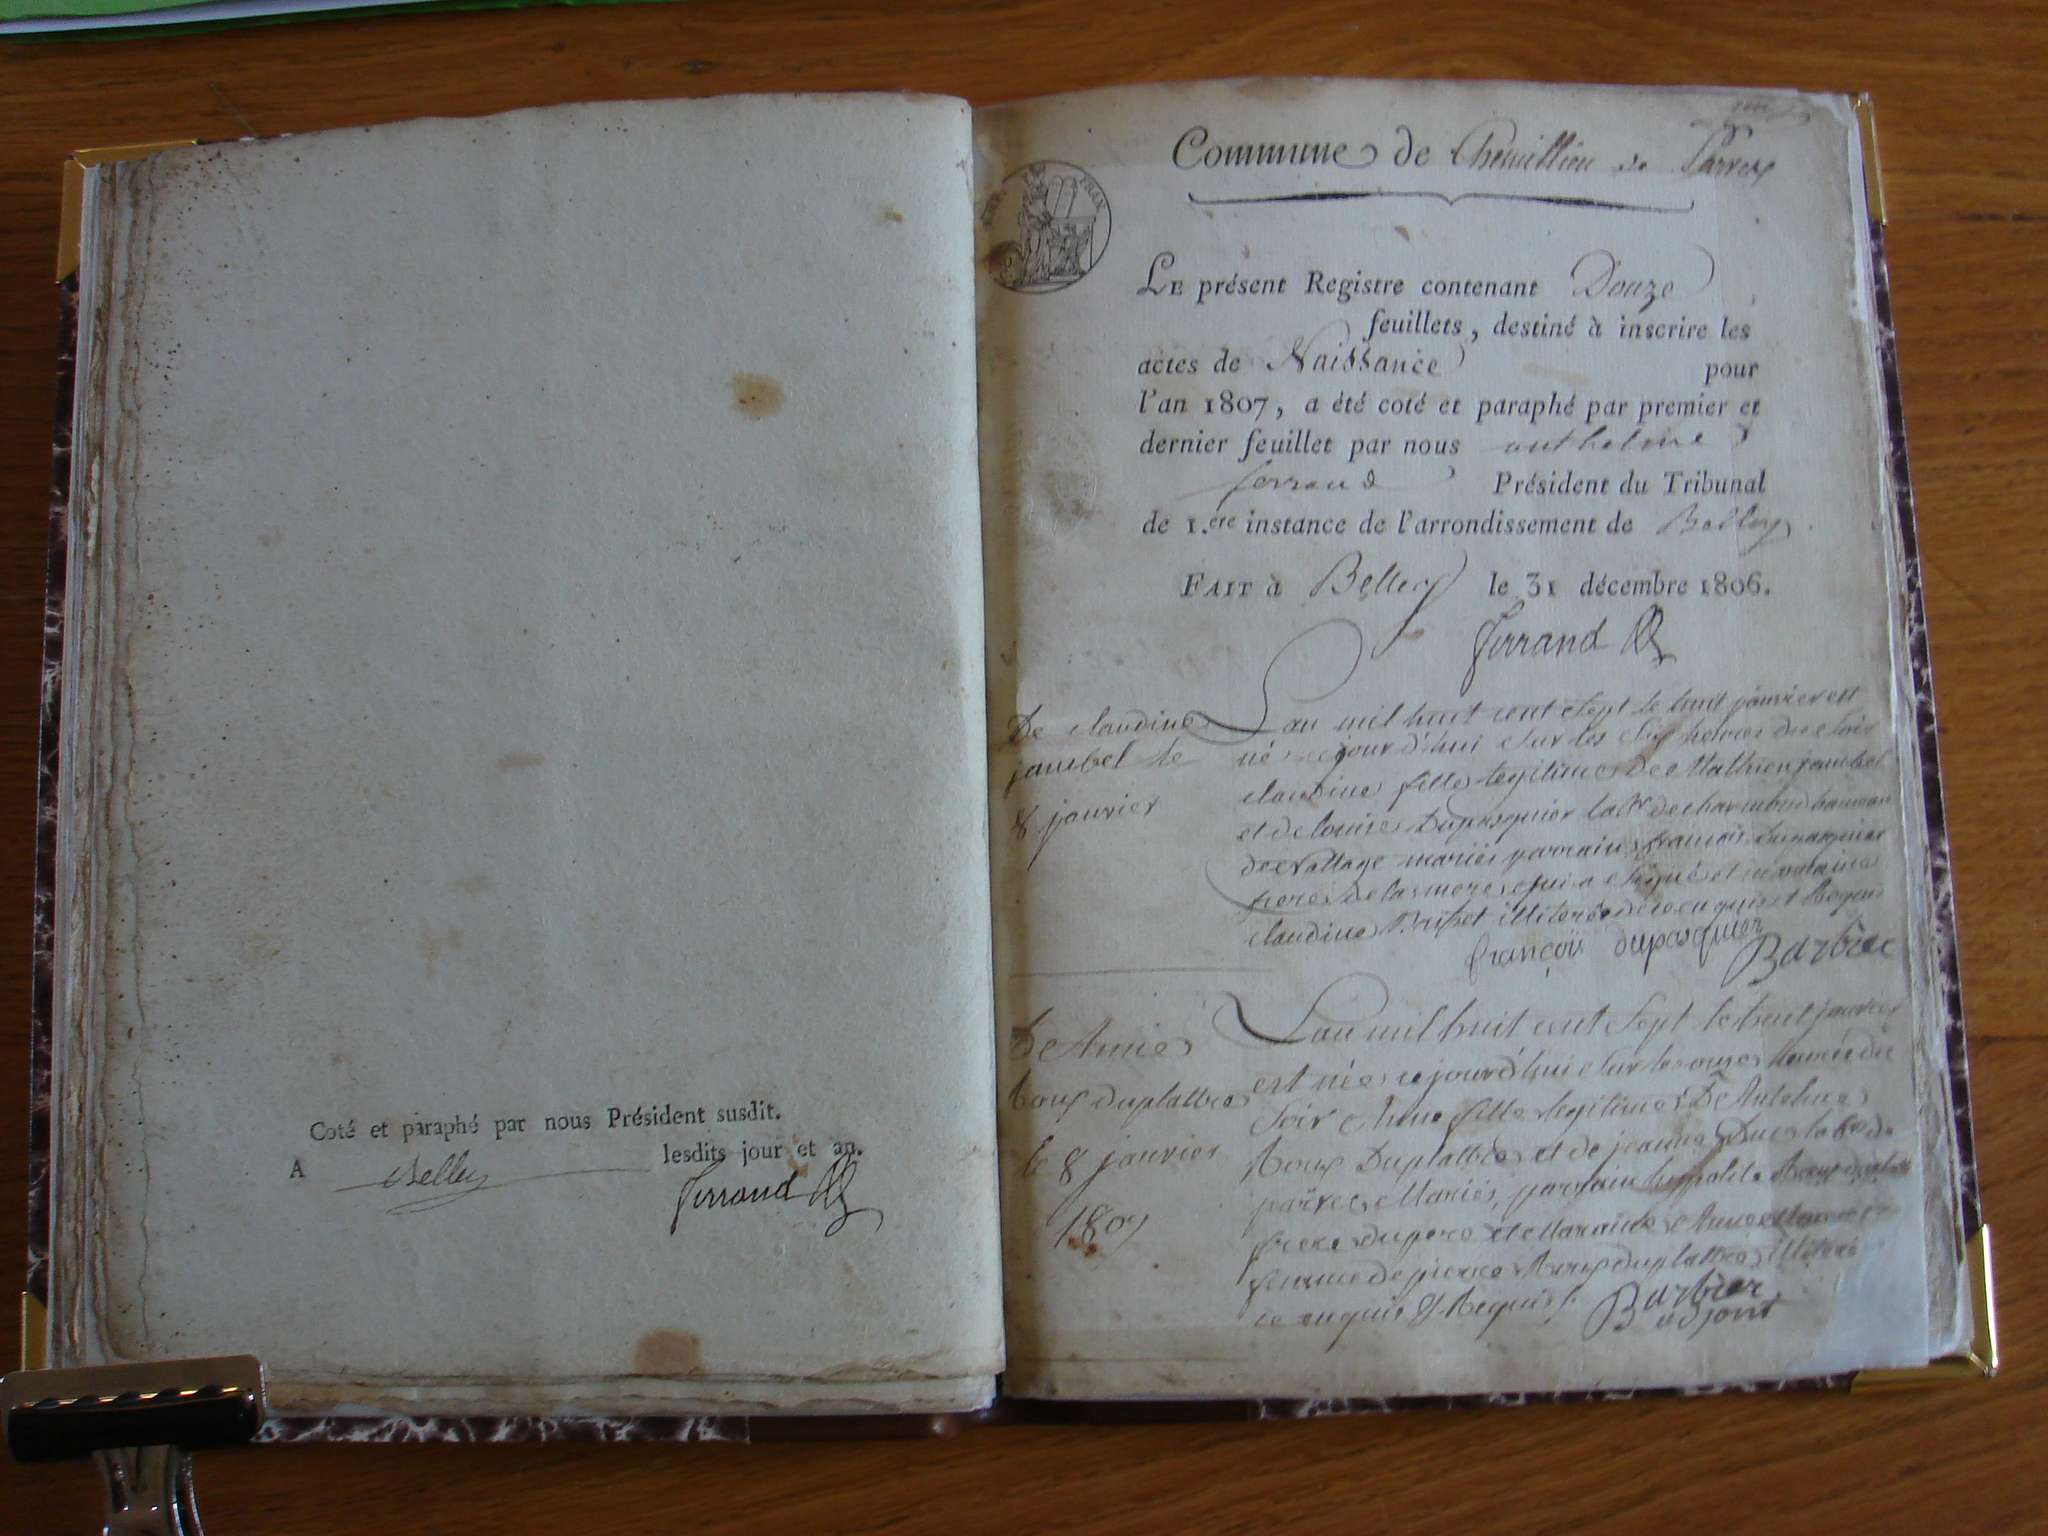 Coté et paraphé par nous Président susdit.
A Belley lesdits jour et an.
Ferrand
Commune de Chemillieu de Parves
REP. FRAN.
LE présent Registre contenant Douze
feuillets, destiné à inscrire les
actes de Naissance pour
l'an 1807, a été coté et paraphé par premier et
dernier feuillet par nous anthelme
ferrand Président du Tribunal
de 1.ere instance de l'arrondissement de Belley
FAIT à Belley le 31 décembre 1806.
Ferrand
De claudine
jambel le
8 janvier
Lan mil huit cent sept le huit janvier est
né cejourd'hui sur les six heures du soir
claudine fille legitime de Mathieu jambel
et de louise Dupasquier lab.r de charmond hameau
de mariés parrain francois dupasquier
frere de la mere qui a signé et maraine
claudine illiterée de ce enquis et Requis
françois dupasquier
Barbier
De Anne
Roux duplattre
le 8 janvier
1807
Lan mil huit cent sept le huit janvier
est née cejourd'hui sur les onze heures du
soir Anne fille legitime De Antelme
Roux Duplattre et de jeanne de
parves Mariés, parrain hyppolite Roux
frere du pere et Maraine Anne
femme de pierre Roux duplattre illiteré
ce enquis & Requis.
Barbier
adjoint